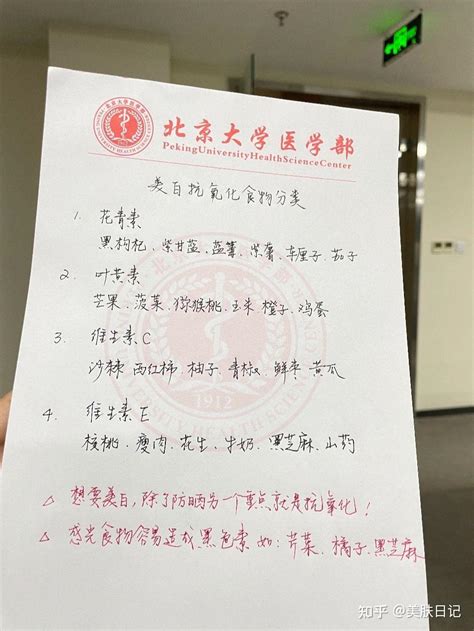 北京大学医学部
PekingUniversityHealthScienceCenter
美白抗氧化食物分类
1. 花青素
黑枸杞、紫甘蓝、蓝莓、紫薯、车厘子、茄子
2. 叶黄素
芒果、菠菜、猕猴桃、玉米、橙子、鸡蛋
3. 维生素C
沙棘、西红柿、柚子、青椒、鲜枣、黄瓜
4. 维生素E
核桃、瘦肉、花生、牛奶、黑芝麻、山药
1912
△ 想要美白，除了防晒另一个重点就是抗氧化！
△ 感光食物容易造成黑色素 如：芹菜、橘子、黑芝麻
知乎 @美肤日记